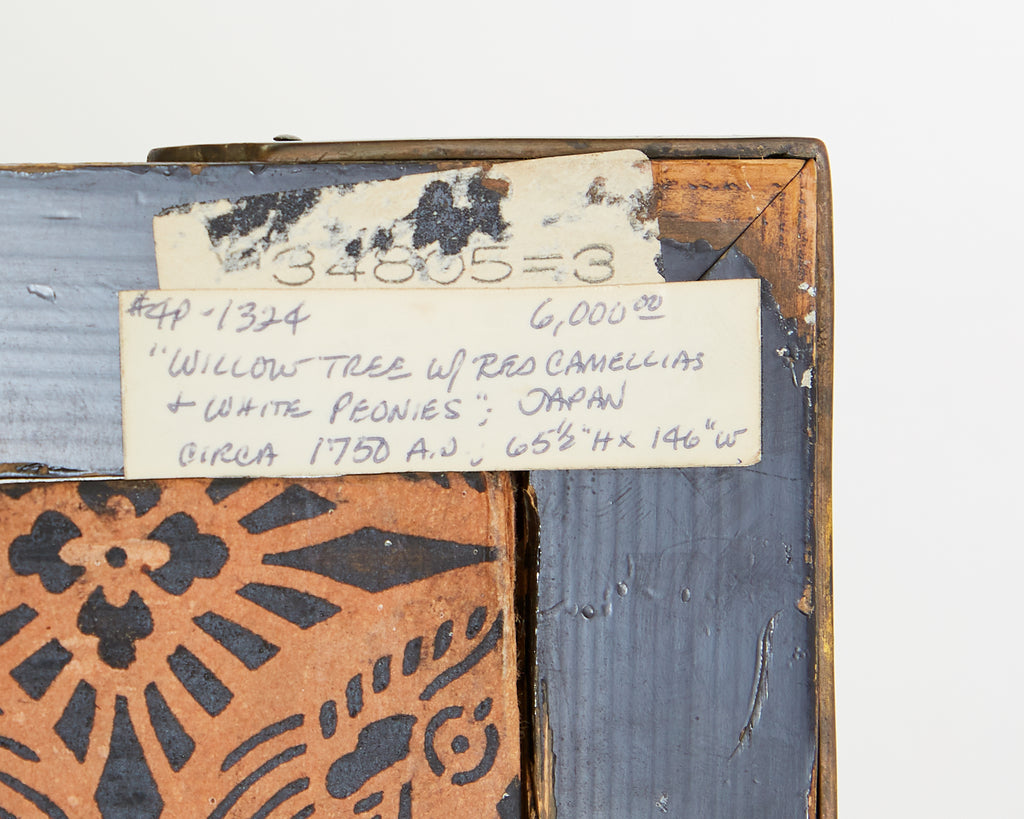 34805=3
#4P-1324 6,000.00
"WILLOW TREE W/ RED CAMELLIAS
+ WHITE PEONIES"; JAPAN
CIRCA 1750 A.D; 65½"H x 146"W